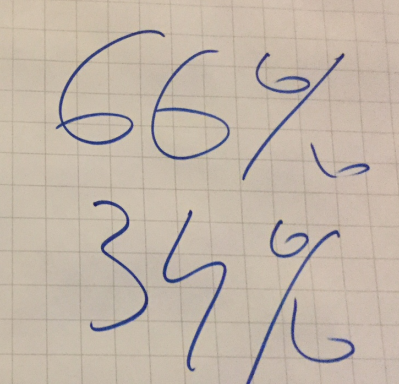 66%
34%